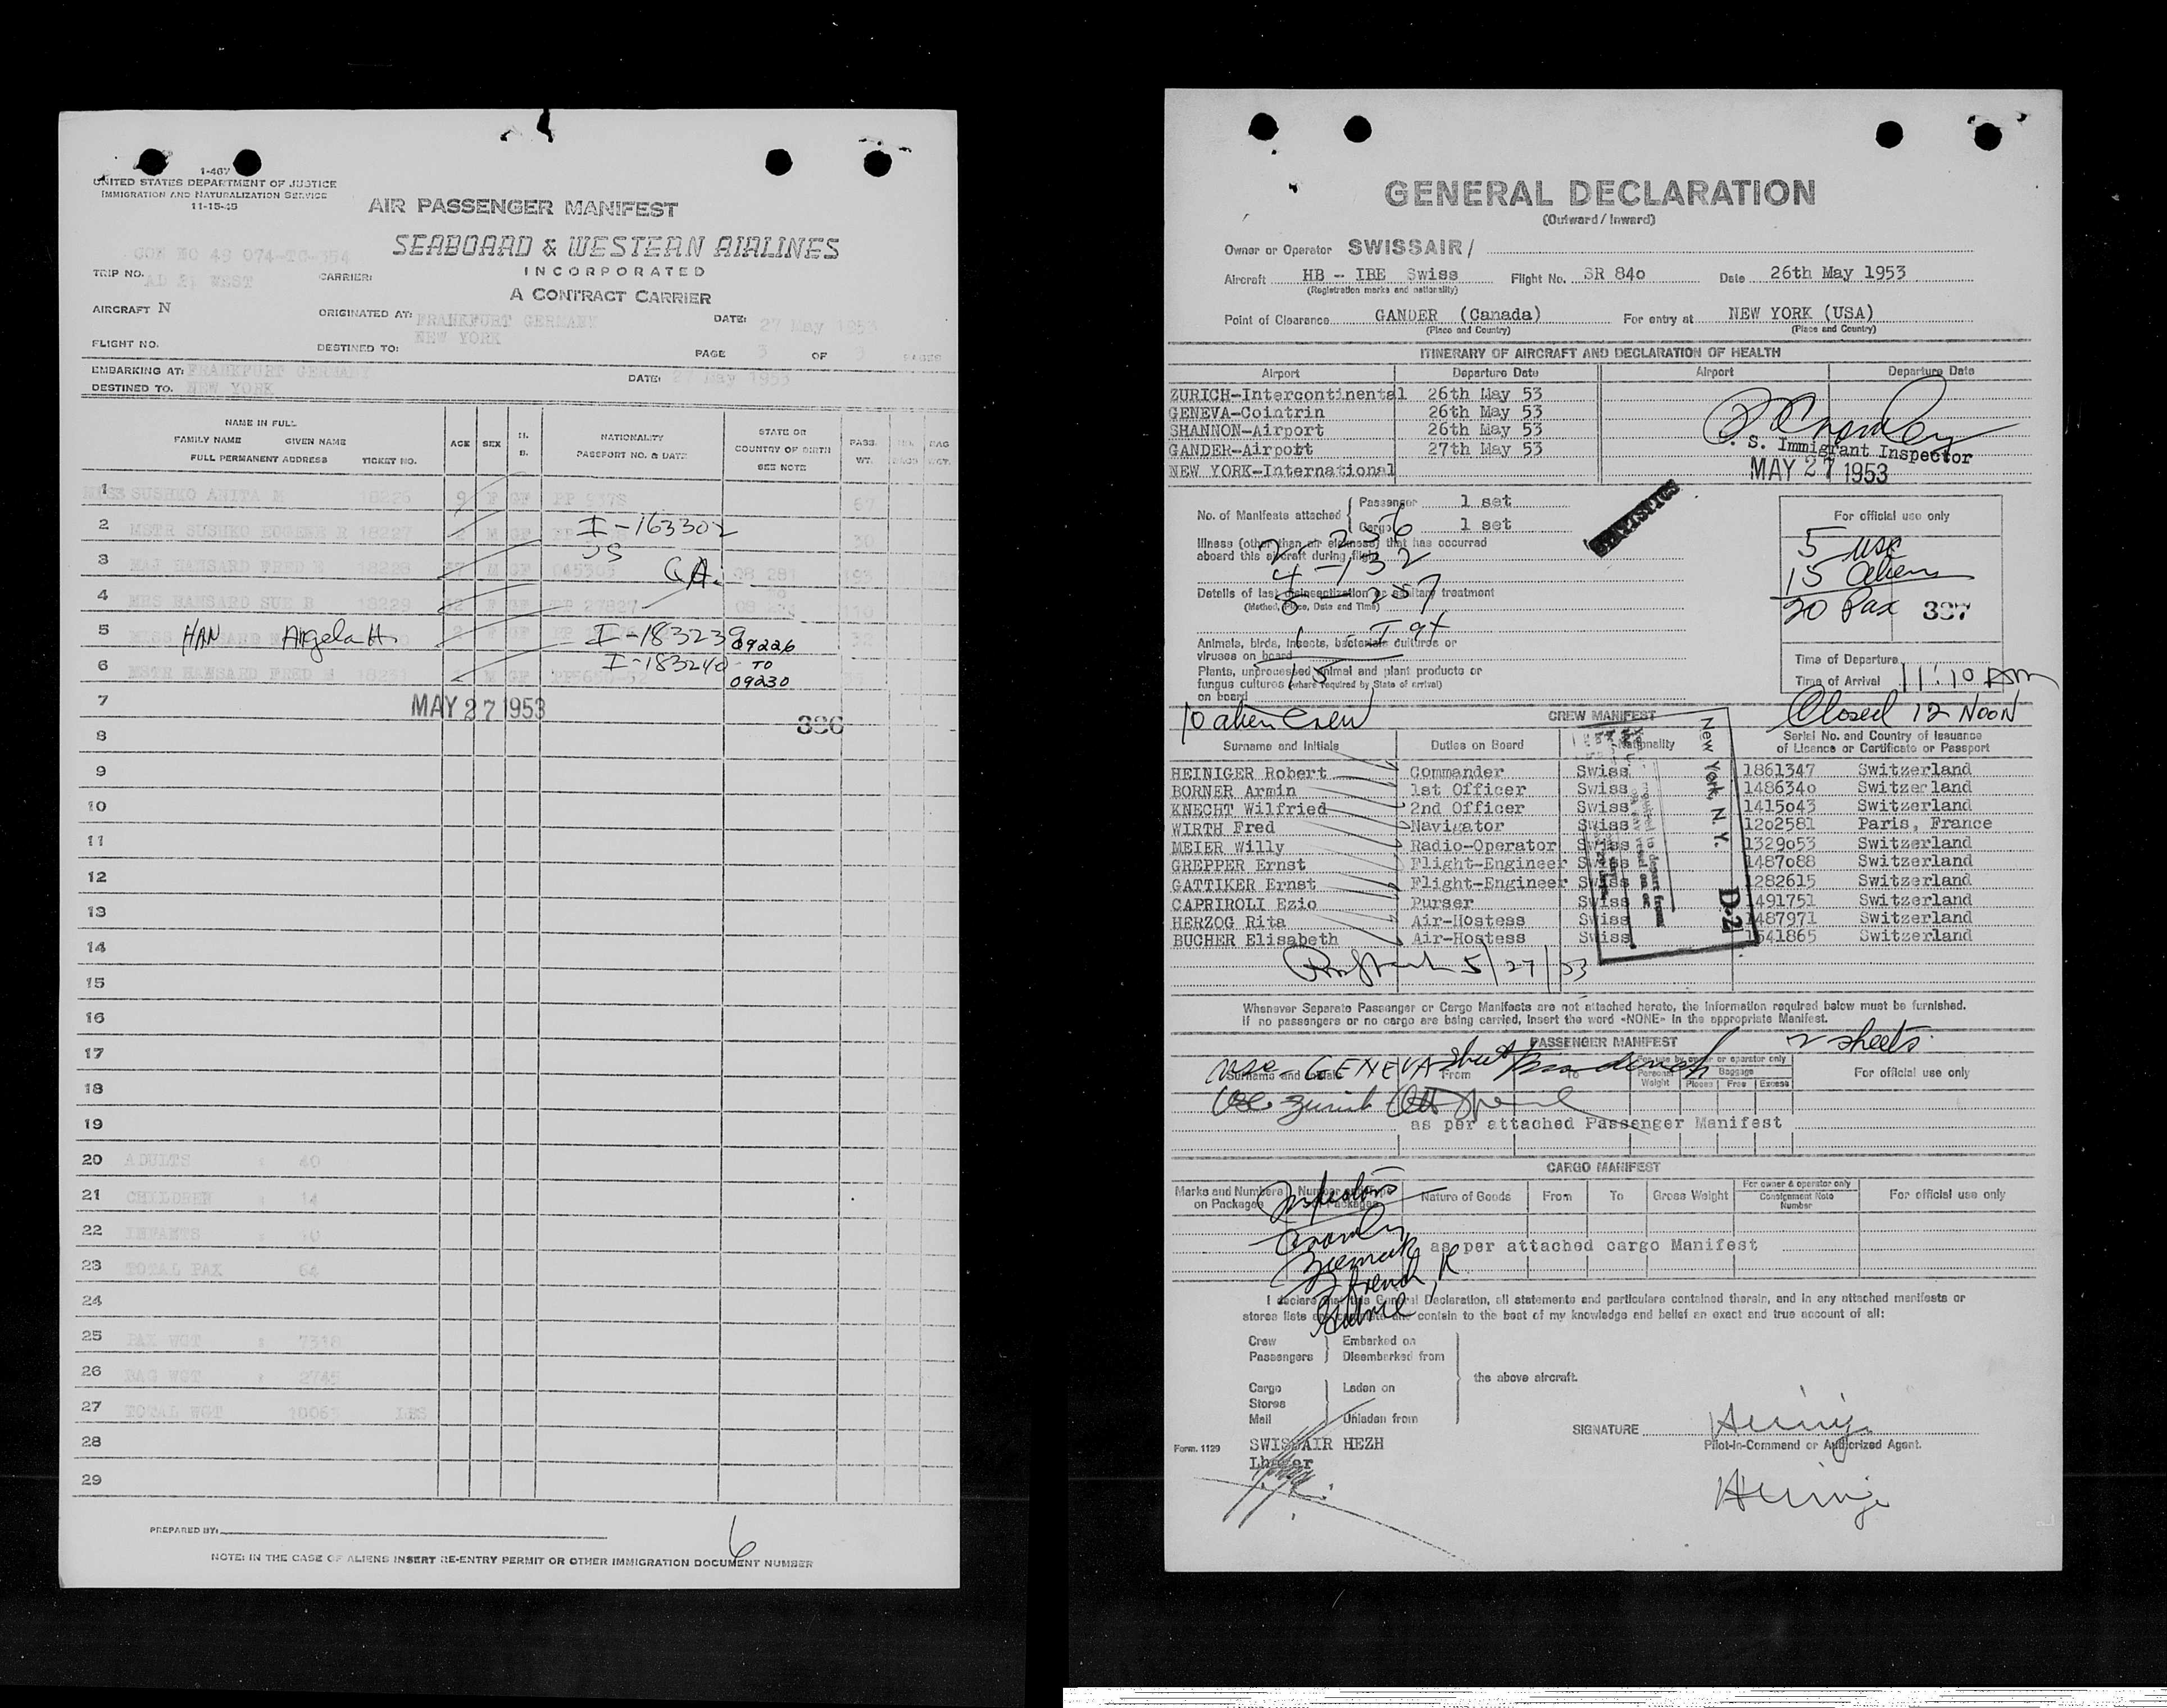 1-467
UNITED STATES DEPARTMENT OF JUSTICE
IMMIGRATION AND NATURALIZATION SERVICE
11-15-49
AIR PASSENGER MANIFEST
SEABOARD & WESTERN AIRLINES
INCORPORATED
A CONTRACT CARRIER
COM MO 49 074-TC-354
TRIP NO. AD WEST CARRIER:
AIRCRAFT N ORIGINATED AT: FRANKFURT GERMANY DATE: 27 May 1953
FLIGHT NO. DESTINED TO: NEW YORK PAGE 3 OF 3 PAGES
EMBARKING AT: FRANKFURT GERMANY DATE: 27 May 1953
DESTINED TO. NEW YORK
NAME IN FULL
FAMILY NAME GIVEN NAME
FULL PERMANENT ADDRESS TICKET NO.
AGE SEX
NATIONALITY
PASSPORT NO. & DATE
STATE OR
COUNTRY OF BIRTH
SEE NOTE
PASS. WT.
BAG WGT.
1 MISS SUSHKO ANITA M 18226 9 F GF PP 937S 67
2 MSTR SUSHKO EUGENE R 18227 2 M GF PP 30
I-163302
3 MAJ HANSARD FRED M 18228 M GF 045303 08 281 193
4 MRS HANSARD SUE B 18229 F GF PP 27827 110
5 MISS 2 F GF 32
HAN Angela H. I-183239 09226
6 MSTR HANSARD FRED M 18231 M GF
I-183240 - TO
09230
7
MAY 27 1953
386
8
9
10
11
12
13
14
15
16
17
18
19
20 ADULTS : 40
21 CHILDREN : 14
22 INFANTS : 10
23 TOTAL PAX 64
24
25 PAX WGT : 7318
26 BAG WGT : 2745
27 TOTAL WGT 10063 LBS
28
29
PREPARED BY:
6
NOTE: IN THE CASE OF ALIENS INSERT RE-ENTRY PERMIT OR OTHER IMMIGRATION DOCUMENT NUMBER
GENERAL DECLARATION
(Outward / Inward)
Owner or Operator SWISSAIR /
Aircraft HB - IBE Swiss Flight No. SR 840 Date 26th May 1953
(Registration marks and nationality)
Point of Clearance GANDER (Canada) For entry at NEW YORK (USA)
(Place and Country) (Place and Country)
ITINERARY OF AIRCRAFT AND DECLARATION OF HEALTH
Airport Departure Date Airport Departure Date
ZURICH-Intercontinental 26th May 53
GENEVA-Cointrin 26th May 53
SHANNON-Airport 26th May 53
GANDER-Airport 27th May 53
NEW YORK-International
S. Immigrant Inspector
MAY 27 1953
No. of Manifests attached
Passenger 1 set
Cargo 1 set
STATISTICS
Illness (other than air sickness) that has occurred
aboard this aircraft during flight
2 - 336
4 - 132
8 - 257
Details of last disinsectization or sanitary treatment
(Method, Place, Date and Time)
Animals, birds, insects, bacterials cultures or
viruses on board
Plants, unprocessed animal and plant products or
fungus cultures (where required by State of arrival)
on board
15
For official use only
5 usc
15 Aliens
20 Pax 387
Time of Departure
Time of Arrival 11:10 AM
Closed 12 NOON
10 alien Crew
CREW MANIFEST
Surname and Initials Duties on Board Nationality
Serial No. and Country of Issuance
of Licence or Certificate or Passport
HEINIGER Robert Commander Swiss 1861347 Switzerland
BORNER Armin 1st Officer Swiss 1486340 Switzerland
KNECHT Wilfried 2nd Officer Swiss 1415043 Switzerland
WIRTH Fred Navigator Swiss 1202581 Paris, France
MEIER Willy Radio-Operator Swiss 1329053 Switzerland
GREPPER Ernst Flight-Engineer Swiss 1487088 Switzerland
GATTIKER Ernst Flight-Engineer Swiss 1282615 Switzerland
CAPRIROLI Ezio Purser Swiss 1491751 Switzerland
HERZOG Rita Air-Hostess Swiss 1487971 Switzerland
BUCHER Elisabeth Air-Hostess Swiss 1641865 Switzerland
New York, N. Y.
D-2
5/27/53
Whenever Separate Passenger or Cargo Manifests are not attached hereto, the information required below must be furnished.
If no passengers or no cargo are being carried, insert the word «NONE» in the appropriate Manifest.
PASSENGER MANIFEST
2 sheets
Surname and Initials From To
For use by owner or operator only
Personal Weight Baggage Pieces Free Excess
For official use only
GENEVA sheet
Zurich
as per attached Passenger Manifest
CARGO MANIFEST
Marks and Numbers on Packages
Nature of Goods From To Gross Weight
For owner & operator only
Consignment Note Number
For official use only
Inspectors
as per attached cargo Manifest
I declare that this General Declaration, all statements and particulars contained therein, and in any attached manifests or
stores lists are complete and contain to the best of my knowledge and belief an exact and true account of all:
Crew
Passengers
Embarked on
Disembarked from
Cargo
Stores
Mail
Laden on
Unladen from
the above aircraft.
SIGNATURE
Pilot-in-Command or Authorized Agent.
Form. 1129
SWISSAIR HEZH